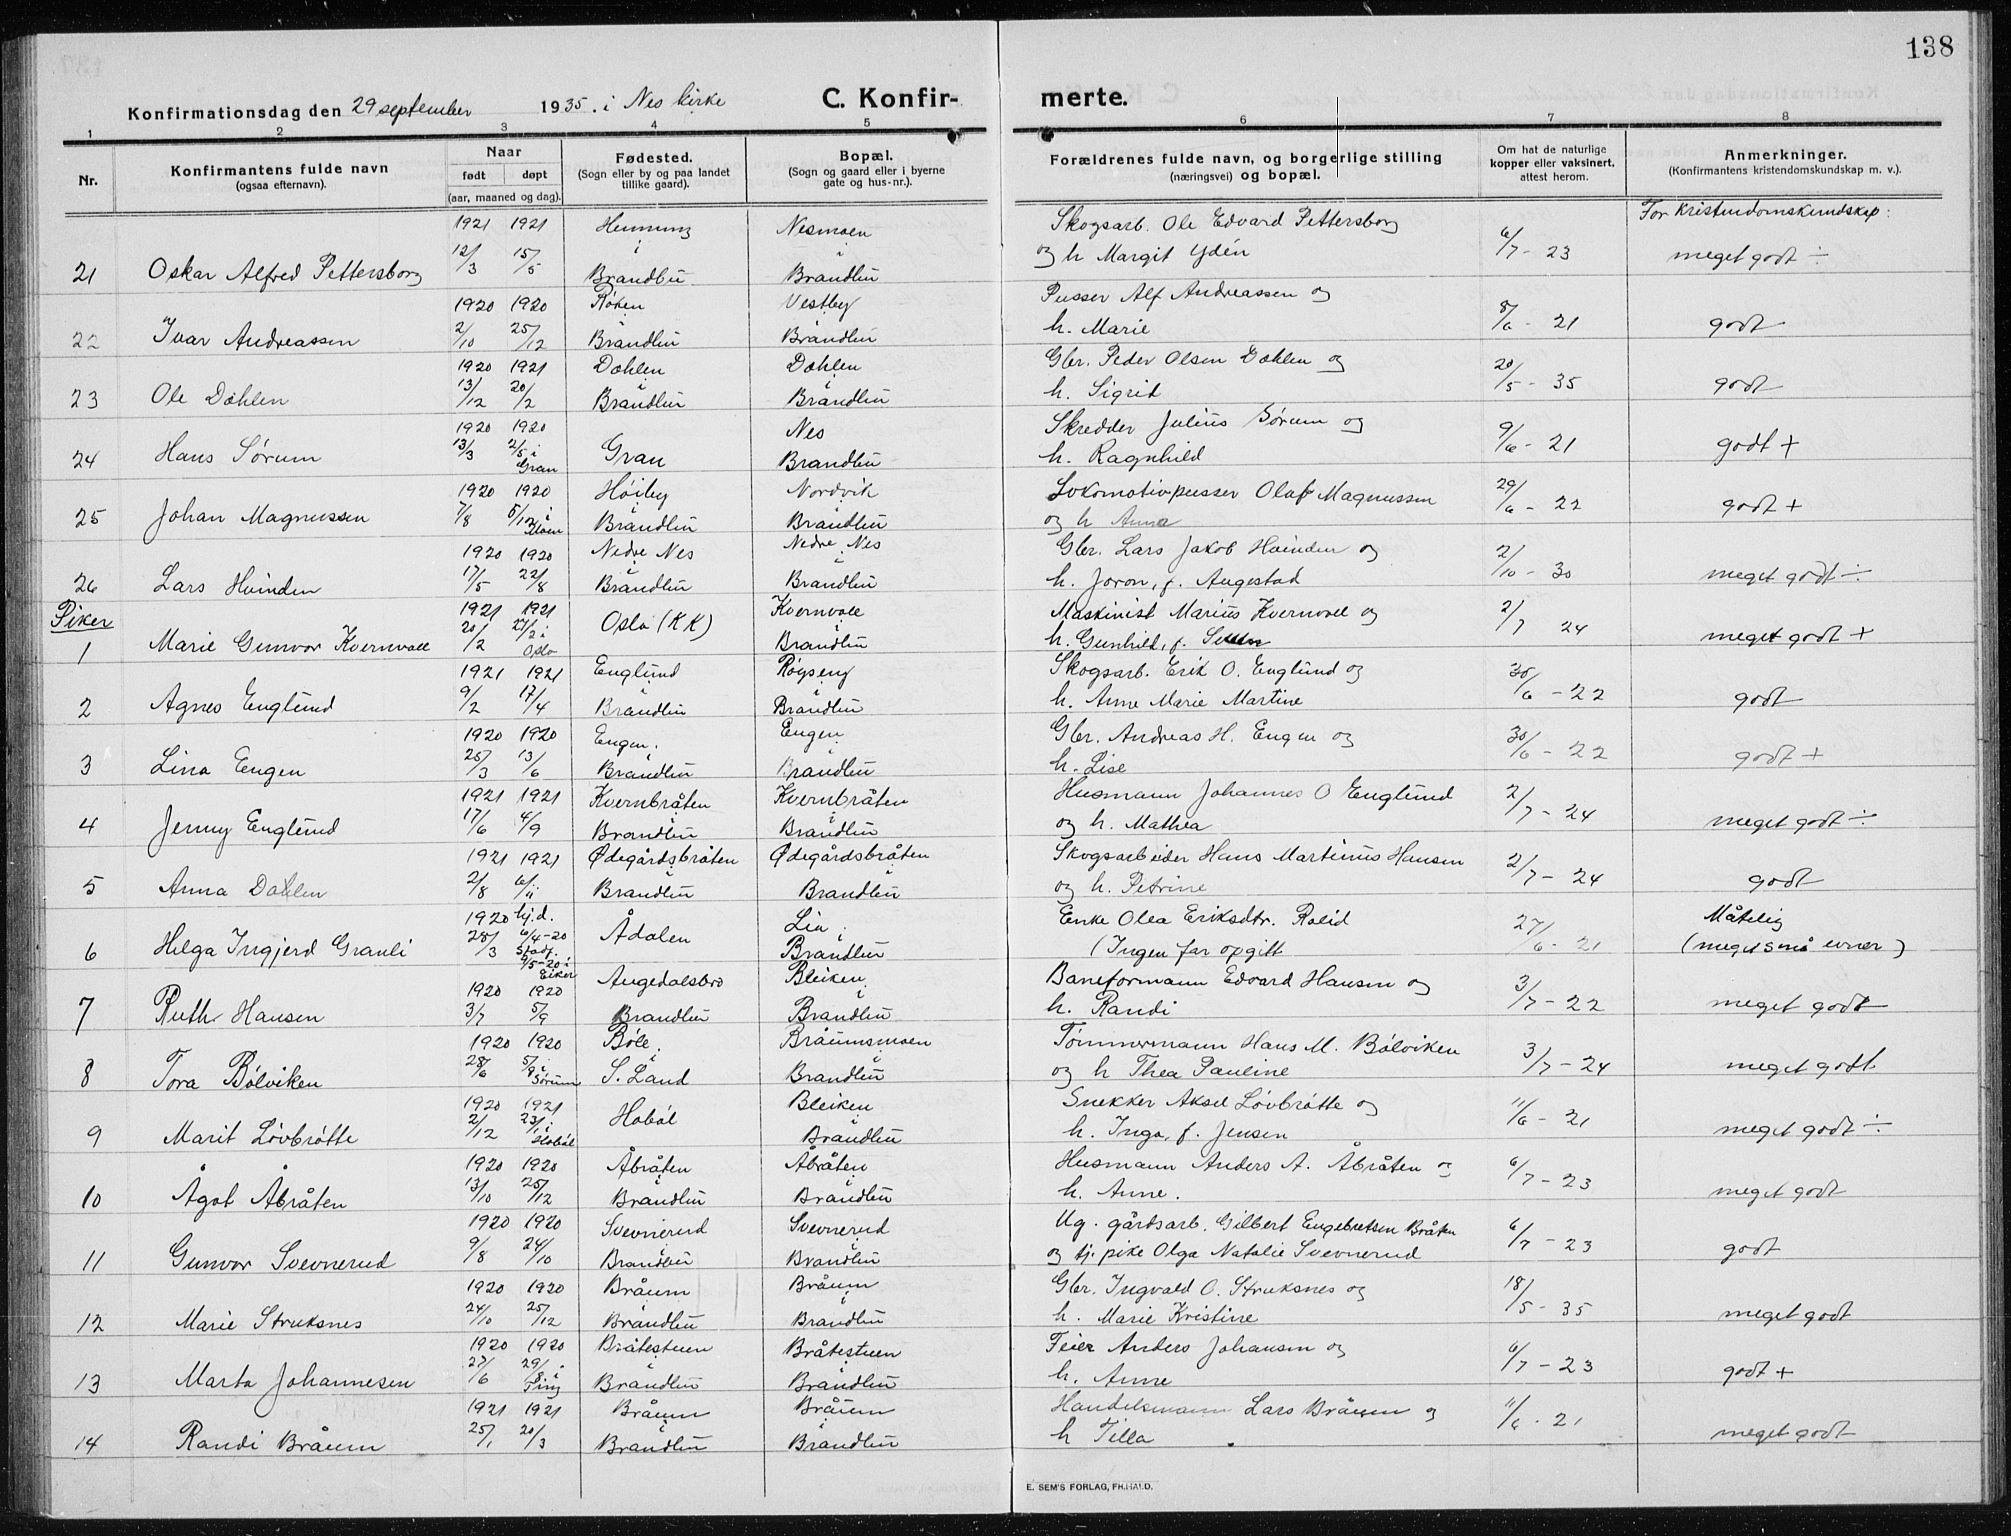 138
Konfirmationsdag den 29 september 1935. i Nes kirke C. Konfirmerte.
1 2 3 4 5 6 7 8
Nr. Konfirmantens fulde navn (ogsaa efternavn). Naar født døpt (aar, maaned og dag). Fødested. (Sogn eller by og paa landet tillike gaard). Bopæl. (Sogn og gaard eller i byerne gate og hus-nr.). Forældrenes fulde navn, og borgerlige stilling (næringsvei) og bopæl. Om hat de naturlige kopper eller vaksinert, attest herom. Anmerkninger. (Konfirmantens kristendomskundskap m. v.).
For Kristendomskundskap:
1921 1921 Nesmoen Skogsarb. Ole Edvard Pettersborg
21 Oskar Alfred Pettersborg 12/3 15/5 i Brandbu i Brandbu og h Margit Ydén 6/7 - 23 meget godt ÷
1920 1920 Røken Vestby Pusser Alf Andreassen og
22 Ivar Andreassen 2/10 25/12 i Brandbu i Brandbu h. Marie 8/6 - 21 godt
1920 1921 Dahlen Dahlen Gbr. Peder Olsen Dahlen og
23 Ole Dahlen 13/12 20/2 i Brandbu i Brandbu h. Sigrid 20/5 - 35 godt
1920 1920 Nes Skredder Julius Sørum og
24 Hans Sørum 13/3 2/5 i Gran Gran Brandbu h. Ragnhild 9/6 - 21 godt +
1920 1920 Høiby Nordvik Lokomotivpusser Olaf Magnussen
25 Johan Magnussen 7/8 5/12 i Moen i Brandbu i Brandbu og h Anna 29/6 - 22 godt +
1920 1920 Nedre Nes Nedre Nes Gbr. Lars Jakob Hvinden og
26 Lars Hvinden 17/5 22/8 i Brandbu i Brandbu h. Joron, f. Augestad 2/10 - 30 meget godt ÷
Piker
1921 1921 Kvernvoll Maskinist Marius Kvernvoll og
1 Marie Gunvor Kvernvoll 20/2 27/2 i Oslo Oslo (KK) i Brandbu h. Gunhild, f. 2/7 24 meget godt +
1921 1921 Englund Røyseng Skogsarb. Erik O. Englund og
2 Agnes Englund 9/2 17/4 i Brandbu i Brandbu h. Anne Marie Martine 30/6 - 22 godt
1920 1920 Engen Engen Gbr. Andreas H. Engen og
3 Lina Engen 25/3 13/6 i Brandbu i Brandbu h. Lise 30/6 - 22 godt +
1921 1921 Kvernbråten Kvernbråten Husmann Johannes O Englund
4 Jenny Englund 17/6 4/9 i Brandbu i Brandbu og h. Mathea 2/7 - 24 meget godt ÷
1921 1921 Ødegårdsbråten Ødegårdsbråten Skogsarbeider Hans Martinius Hansen
5 Anna Dahlen 2/8 6/11 i Brandbu i Brandbu og h. Petrine 2/7 - 24 godt
1920 hj.d. Lia Enke Olea Eriksdtr. Rolid Måtelig
6 Helga Ingjerd Granli 25/3 6/4-20 Stadf. 9/5-20 i Eiker Ådalen i Brandbu (Ingen far opgitt 27/6 - 21 (meget små evner)
1920 1920 Augedalsbro Bleiken Baneformann Edvard Hansen og
7 Ruth Hansen 3/7 5/9 Brandbu i Brandbu h. Randi 3/7 - 22 meget godt
1920 1920 Bøle Bråumsmoen Tømmermann Hans M. Bølviken
8 Tora Bølviken 28/6 5/9 i Sørum i S. Land i Brandbu og h Thea Pauline 3/7 - 24 meget godt
1920 1921 Bleiken Snekker Aksel Løvbrøtte og
9 Marit Løvbrøtte 2/12 23/1 i Hobøl Hobøl i Brandbu h. Inga, f. Jensen 11/6 - 21 meget godt ÷
1920 1920 Åbråten Åbråten Husmann Anders A. Åbråten og
10 Ågot Åbråten 13/10 25/12 i Brandbu i Brandbu h. Anne. 6/7 - 23 meget godt
1920 1920 Svevnerud Svevnerud Ug. gårdsarb. Gilbert Engebretsen Bråten
11 Gunvor Svevnerud 9/8 24/10 i Brandbu i Brandbu og tj. pike Olga Natalie Svevnerud 6/7 - 23 godt
1920 1920 Bråum Bråum Gbr. Ingvald O. Struksnes og
12 Marie Struksnes 24/10 25/12 i Brandbu i Brandbu h. Marie Kristine 18/5 - 35 meget godt
1920 1920 Bråtestuen Bråtestuen Feier Anders Johansen og
13 Marta Johannesen 27/6 29/8 i Ting i Brandbu i Brandbu h. Anne 6/7 - 23 godt +
1921 1921 Bråum Bråum Handelsmann Lars Bråum og
14 Randi Bråum 25/1 20/3 i Brandbu i Brandbu h Tilla 11/6 - 21 meget godt
E. SEM'S FORLAG, FR.HALD.